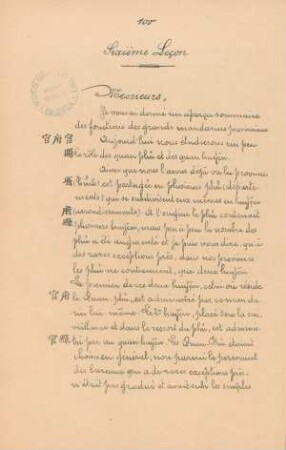 100
Sixième Leçon
Messieurs,
Je vous ai donné un aperçu sommaire
des fonctions des grands mandarins provinciaux
官府 Aujourd'hui nous étudierons un peu
官縣 le rôle des quan phủ et des quan huyện.
Ainsi que nous l'avons déjà vu la province
(tỉnh) est partagée en plusieurs phủ (départe-
ments) qui se subdivisent eux mêmes en huyện
(arrondissements). A l'origine le phủ contenait
plusieurs huyện, mais peu à peu le nombre des
phủ a été augmenté et je puis vous dire, qu'à
de rares exceptions près, dans nos provinces
les phủ ne contiennent, que deux huyện.
Le premier de ces deux huyện, celui où réside
官府 le Quan phủ, est administré par ce manda-
rin lui même. Le 2e huyện, placé sous la sur-
veillance et dans le ressort du phủ, est adminis-
官縣 tré par un quan huyện. Les Quan-Phủ étaient
choisis en général, non parmi le personnel
des bureaux qui à de rares exceptions près,
n'était pas gradué et avait subi les simples